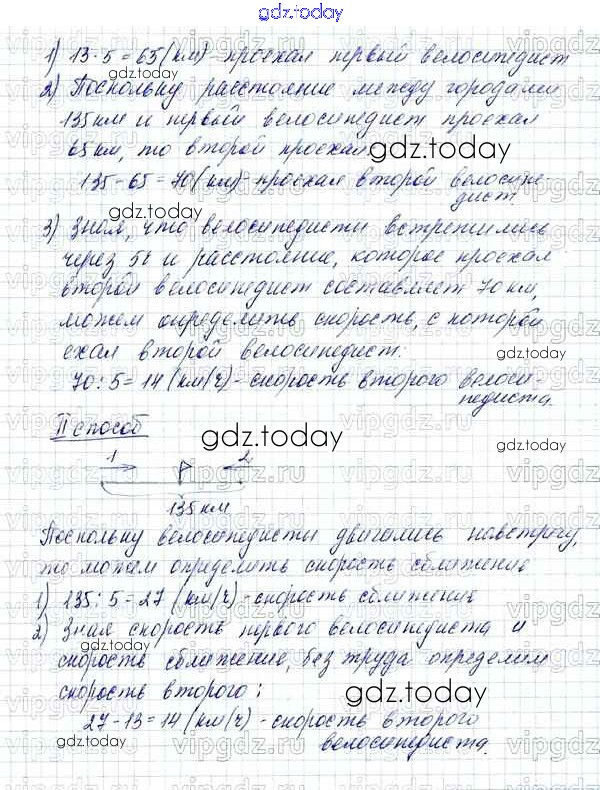 gdz.today
1) 13·5=65(км)-проехал первый велосипедист
gdz.today
2) Поскольку расстояние между городами
135км и первый велосипедист проехал
65км, то второй проехал
gdz.today
135-65=70(км)-проехал второй велосипе-
дист
gdz.today
3) Зная, что велосипедисты встретились
через 5ч и расстояние, которое проехал
второй велосипедист составляет 70км,
можем определить скорость, с которой
ехал второй велосипедист:
gdz.today
70:5=14(км/ч)-скорость второго велоси-
педиста.
II способ
gdz.today
1 2
135км
Поскольку велосипедисты двигались навстречу,
то можем определить скорость сближение
1) 135:5=27 (км/ч)-скорость сближение
2) Зная скорость первого велосипедиста и
скорость сближение, без труда определим
скорость второго:
gdz.today
27-13=14(км/ч)-скорость второго
gdz.today
велосипедиста.
vipgdz.ru